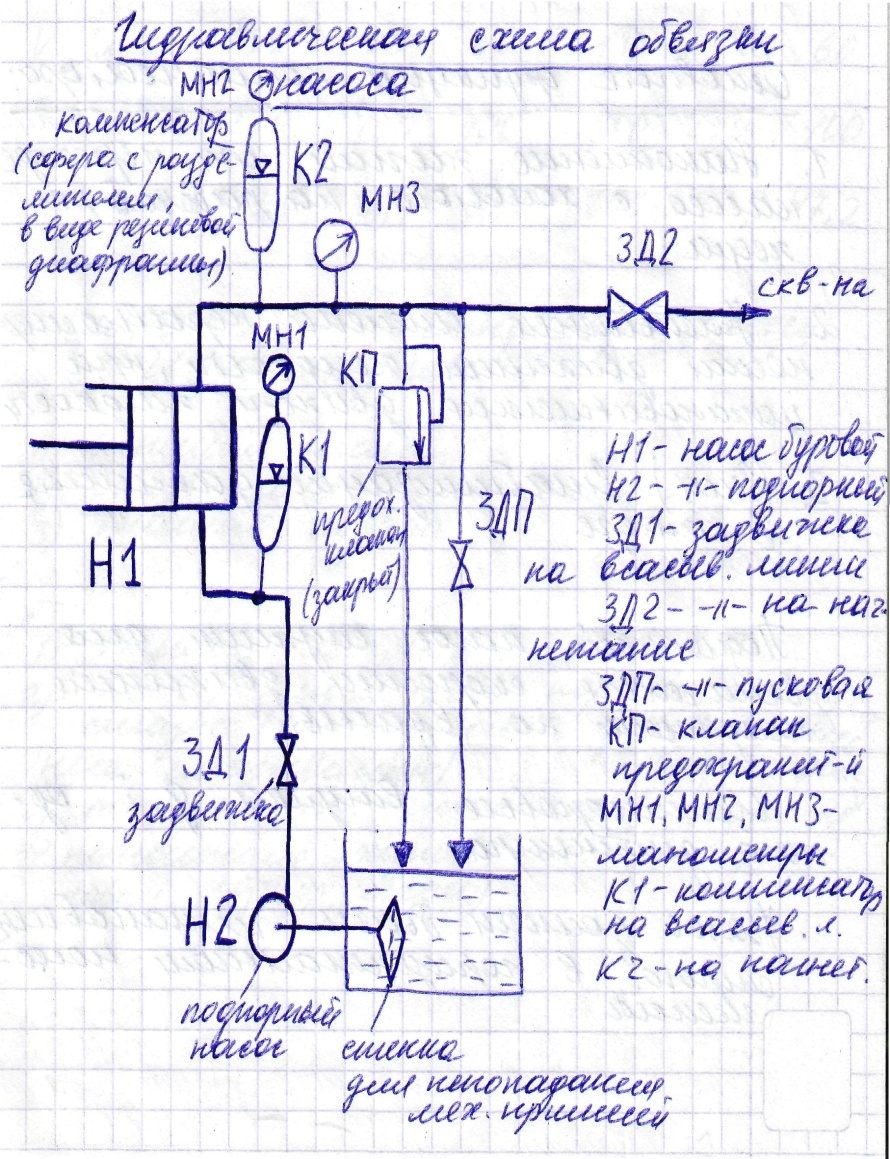 Гидравлическая схема обвязки
насоса
МН2
компенсатор
(сфера с разде-
лителем,
в виде резиновой
диафрагмы)
К2
МН3
ЗД2
скв-на
МН1
КП
К1
Н1
предох.
клапан
(закрыт)
ЗДП
Н1- насос буровой
Н2- -"- подпорный
ЗД1- задвижка
на всасыв. линии
ЗД2- -"- на наг-
нетание
ЗДП- -"- пусковая
КП- клапан
предохранит-й
МН1, МН2, МН3-
манометры
К1- компенсатор
на всасыв. л.
К2-на нагнет.
ЗД1
задвижка
Н2
подпорный
насос
стенка
для непопадания
мех. примесей